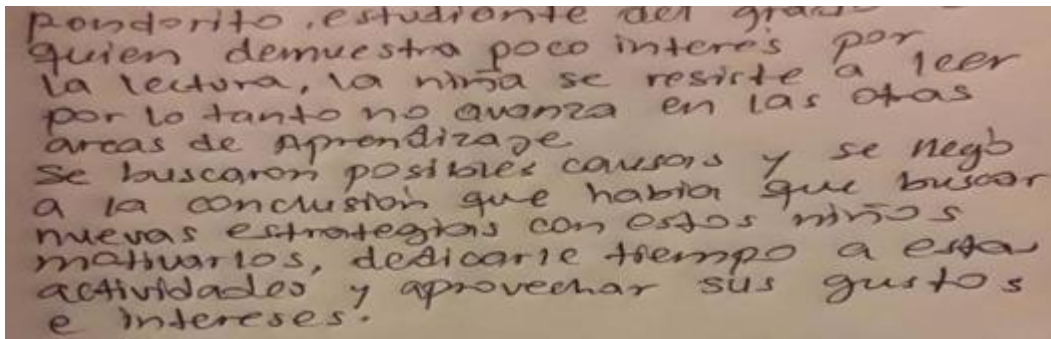 Pondorito, estudiante del grado
quien demuestra poco interés por
la lectura, la niña se resiste a leer
por lo tanto no avanza en las otras
areas de Aprendizaje
se buscaron posibles causas y se llegó
a la conclusión que habia que buscar
nuevas estrategias con estos niños
motivarlos, dedicarle tiempo a esta
actividades y aprovechar sus gustos
e intereses.